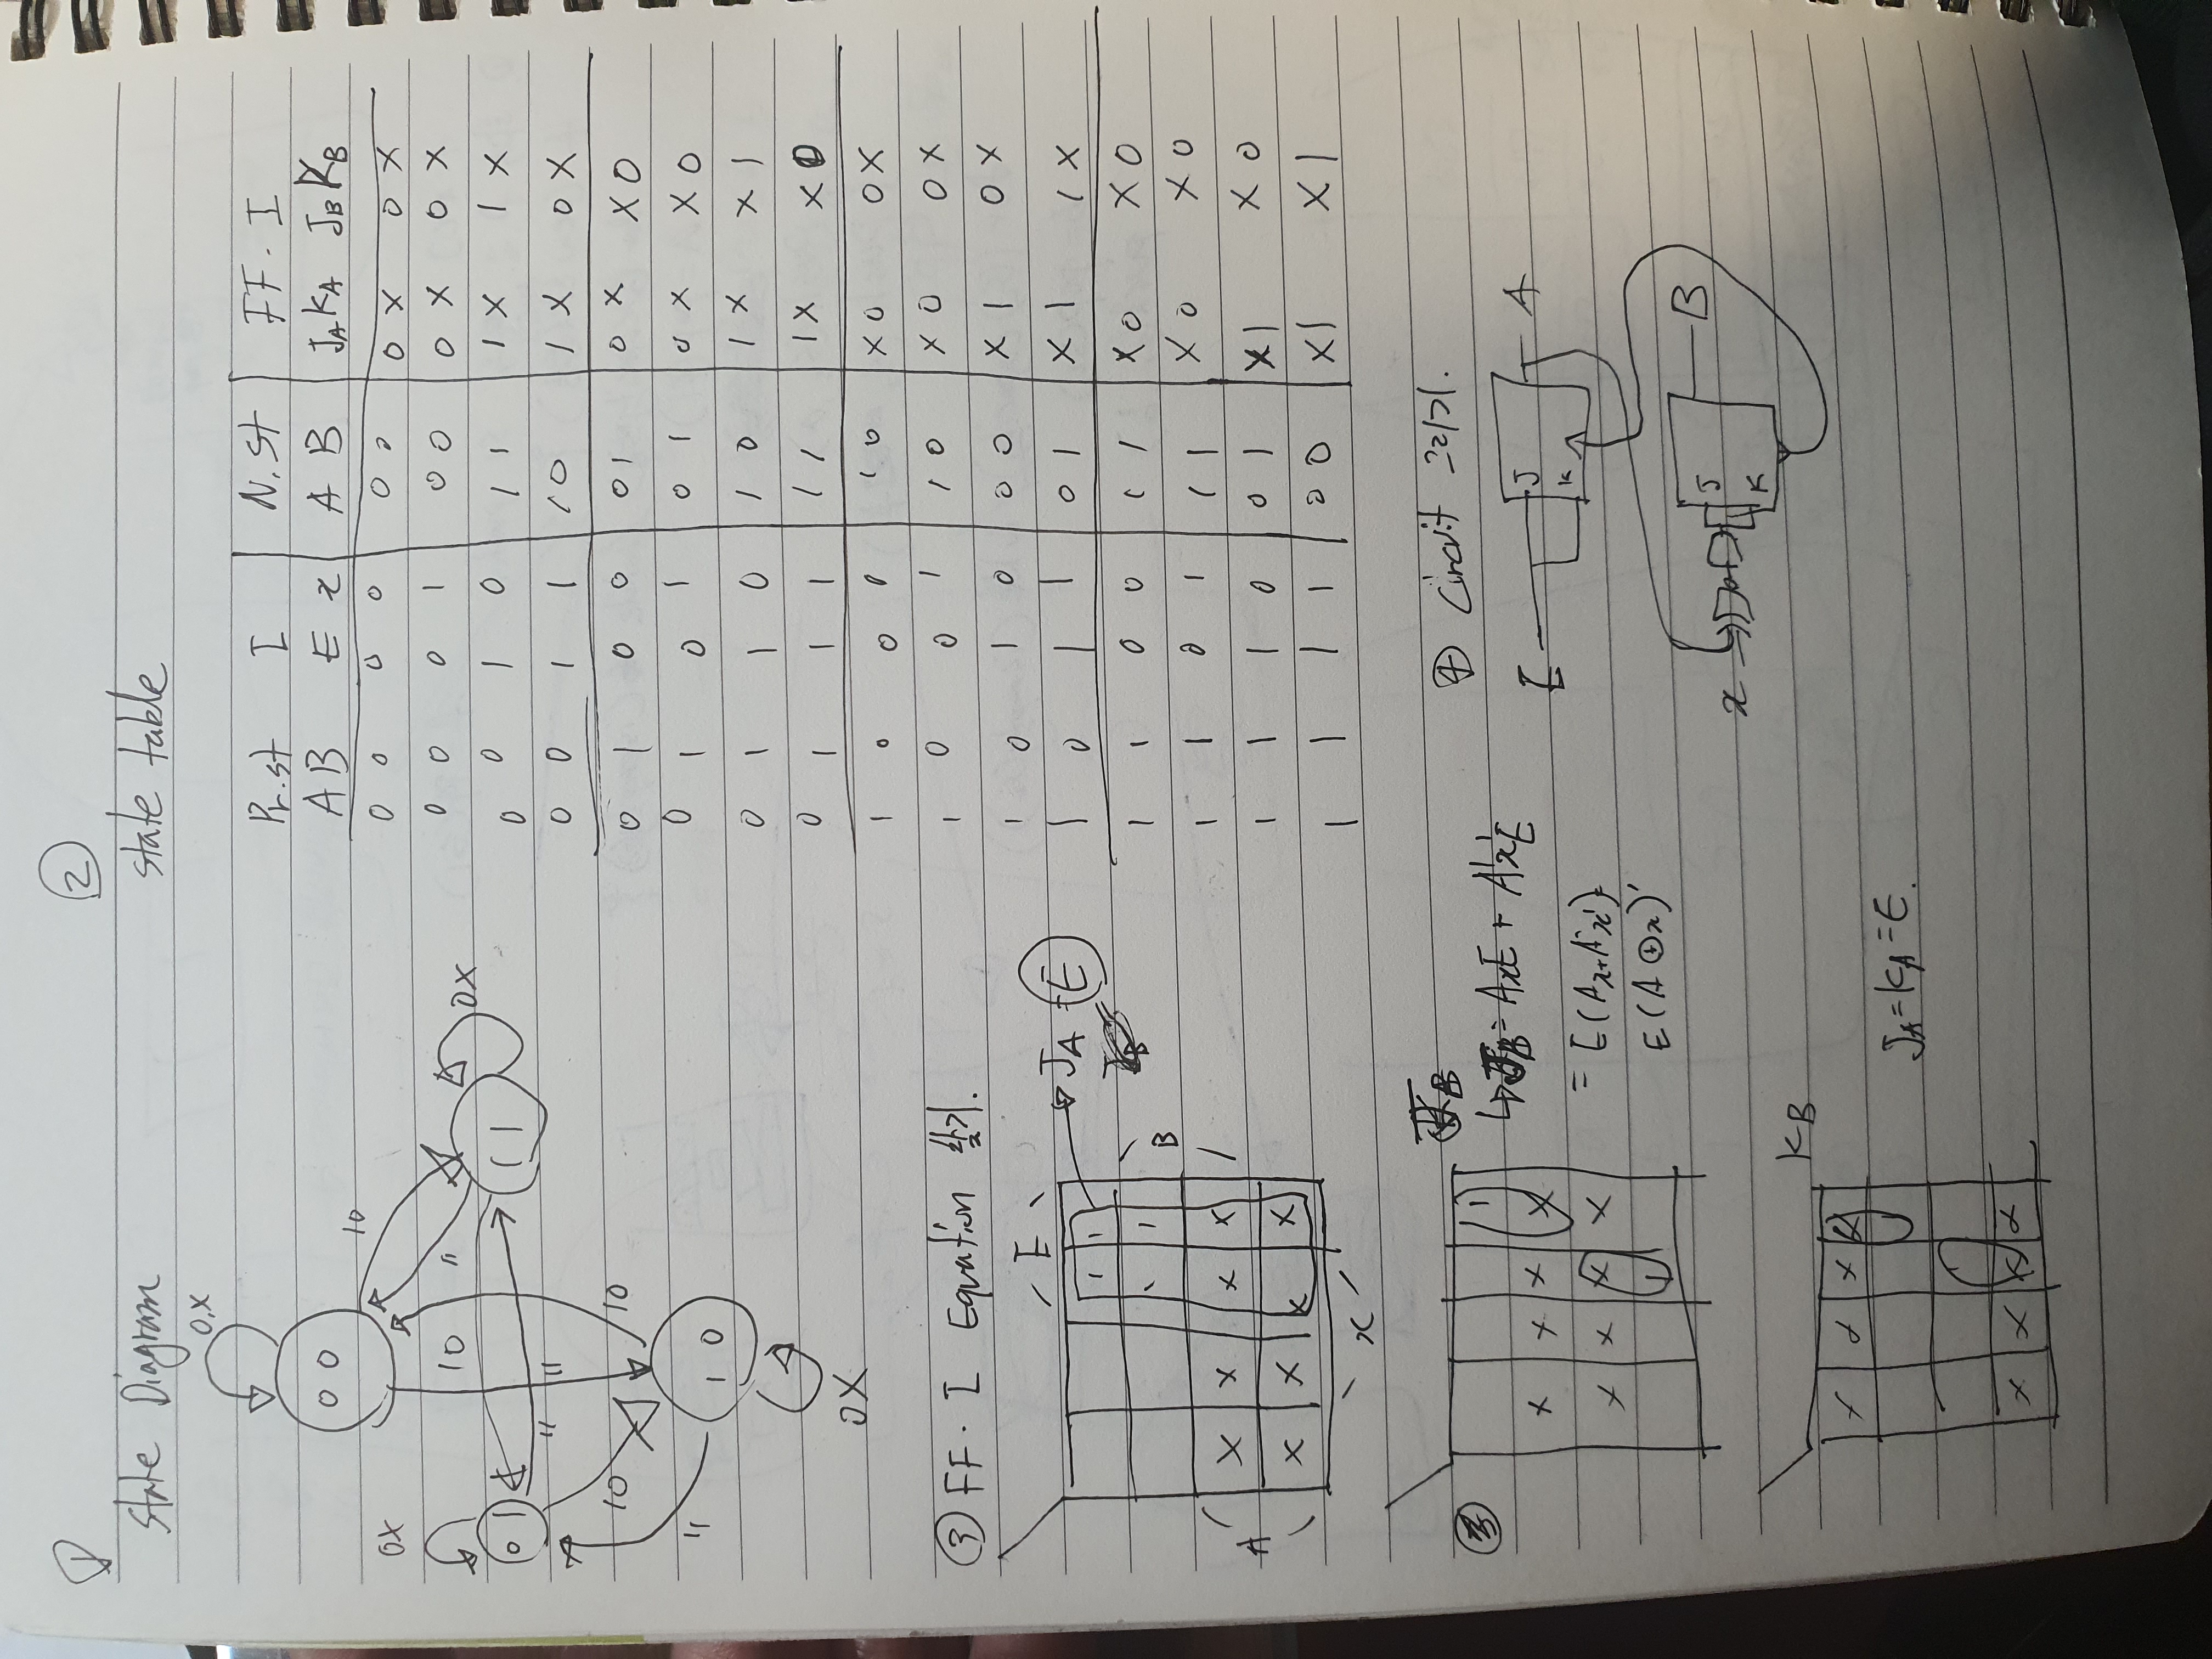 ①
state Diagram
0,X
0 0
10
0X
10
"
0X
0 1
1 1
"
"
10
10
"
1 0
0X
②
state table
Pr.st I N.St FF. I
A B E x A B JA KA JB KB
0 0 0 0 0 0 0 X 0 X
0 0 0 1 0 0 0 X 0 X
0 0 1 0 1 1 1 X 1 X
0 0 1 1 1 0 1 X 0 X
0 1 0 0 0 1 0 X X 0
0 1 0 1 0 1 0 X X 0
0 1 1 0 1 0 1 X X 1
0 1 1 1 1 1 1 X X 0
1 0 0 0 1 0 X 0 0 X
1 0 0 1 1 0 X 0 0 X
1 0 1 0 0 0 X 1 0 X
1 0 1 1 0 1 X 1 1 X
1 1 0 0 1 1 X 0 X 0
1 1 0 1 1 1 X 0 X 0
1 1 1 0 0 1 X 1 X 0
1 1 1 1 0 0 X 1 X 1
③ FF. I Equation 찾기.
E
JA = E
1 1
1 1
B
X X X X
A
X X X X
x
JB
1
JB = AxE + A'x'E
X X X X
= E(Ax+A'x')=
X X X X
E(A⊕x)'
1
KB
X X X X
JA=KA=E.
X X X X
④ Circuit 그리기.
E J A
K
x J B
K